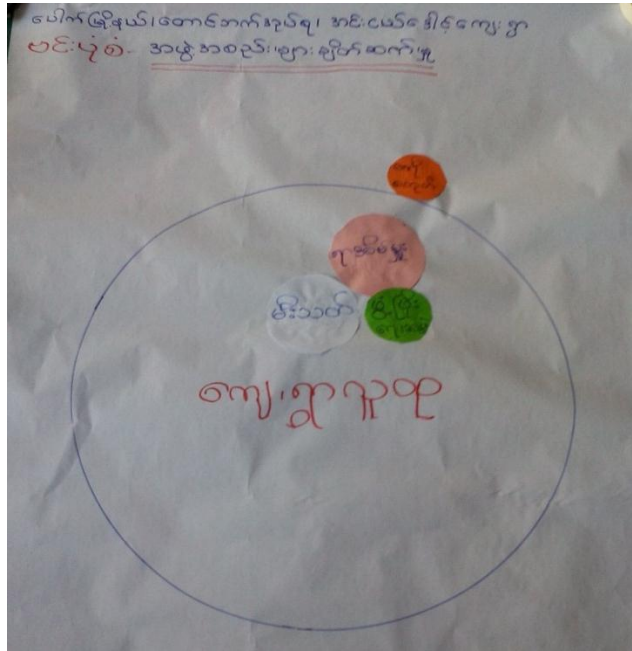 ပေါက်မြို့နယ်၊တောင်ဘက်အုပ်စု၊ အင်းငယ်ခေါင်ကျေးရွာ
ဗင်းပုံစံ- အဖွဲ့အစည်းများချိတ်ဆက်မှု
ရာအိမ်မှူး
မီးသတ်
ကျေးရွာလူထု